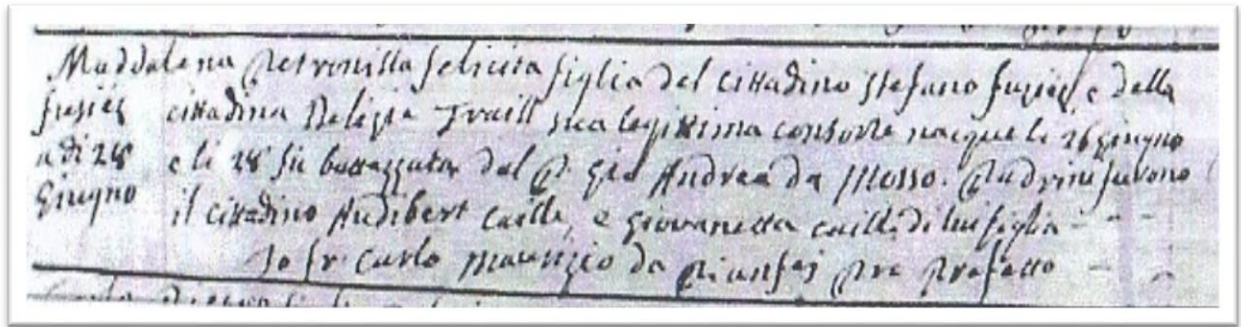 Maddalena Petronilla felicita figlia del cittadino stefano fusiez e della
fusiez cittadina Delizia Traill sua legittima consorte nacque li 26 giugno
a di 28 e li 28 fu battezzata dal P. Gio Andrea da Mosso. Padrini furono
Giugno il cittadino Audibert Caille, e Giovanetta caille di lui figlia
Io fr. Carlo Maurizio da Pianfej Pro Prefetto